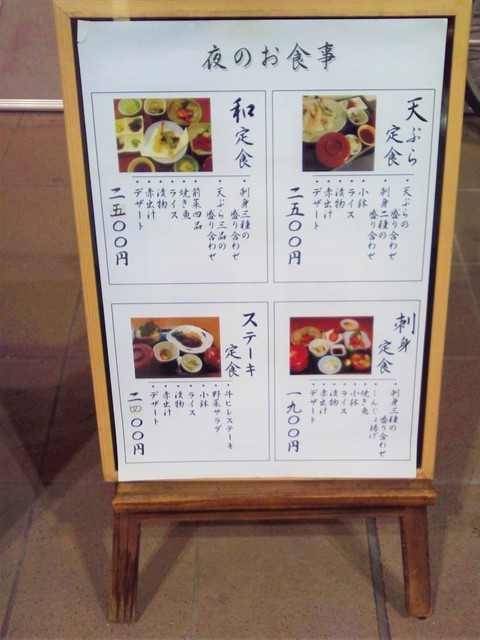 夜のお食事
天ぷら
定食
・天ぷらの
盛り合わせ
・刺身二種の
盛り合わせ
・小鉢
・ライス
・漬物
・赤出汁
・デザート
二五〇〇円
和定食
・刺身三種の
盛り合わせ
・天ぷら三品の
盛り合わせ
・前菜四品
・焼き魚
・ライス
・漬物
・赤出汁
・デザート
二五〇〇円
刺身
定食
・刺身三種の
盛り合わせ
・しんじょ揚げ
・焼き魚
・小鉢
・ライス
・漬物
・赤出汁
・デザート
一九〇〇円
ステーキ
定食
・牛ヒレステーキ
・野菜サラダ
・小鉢
・ライス
・漬物
・赤出汁
・デザート
二四〇〇円